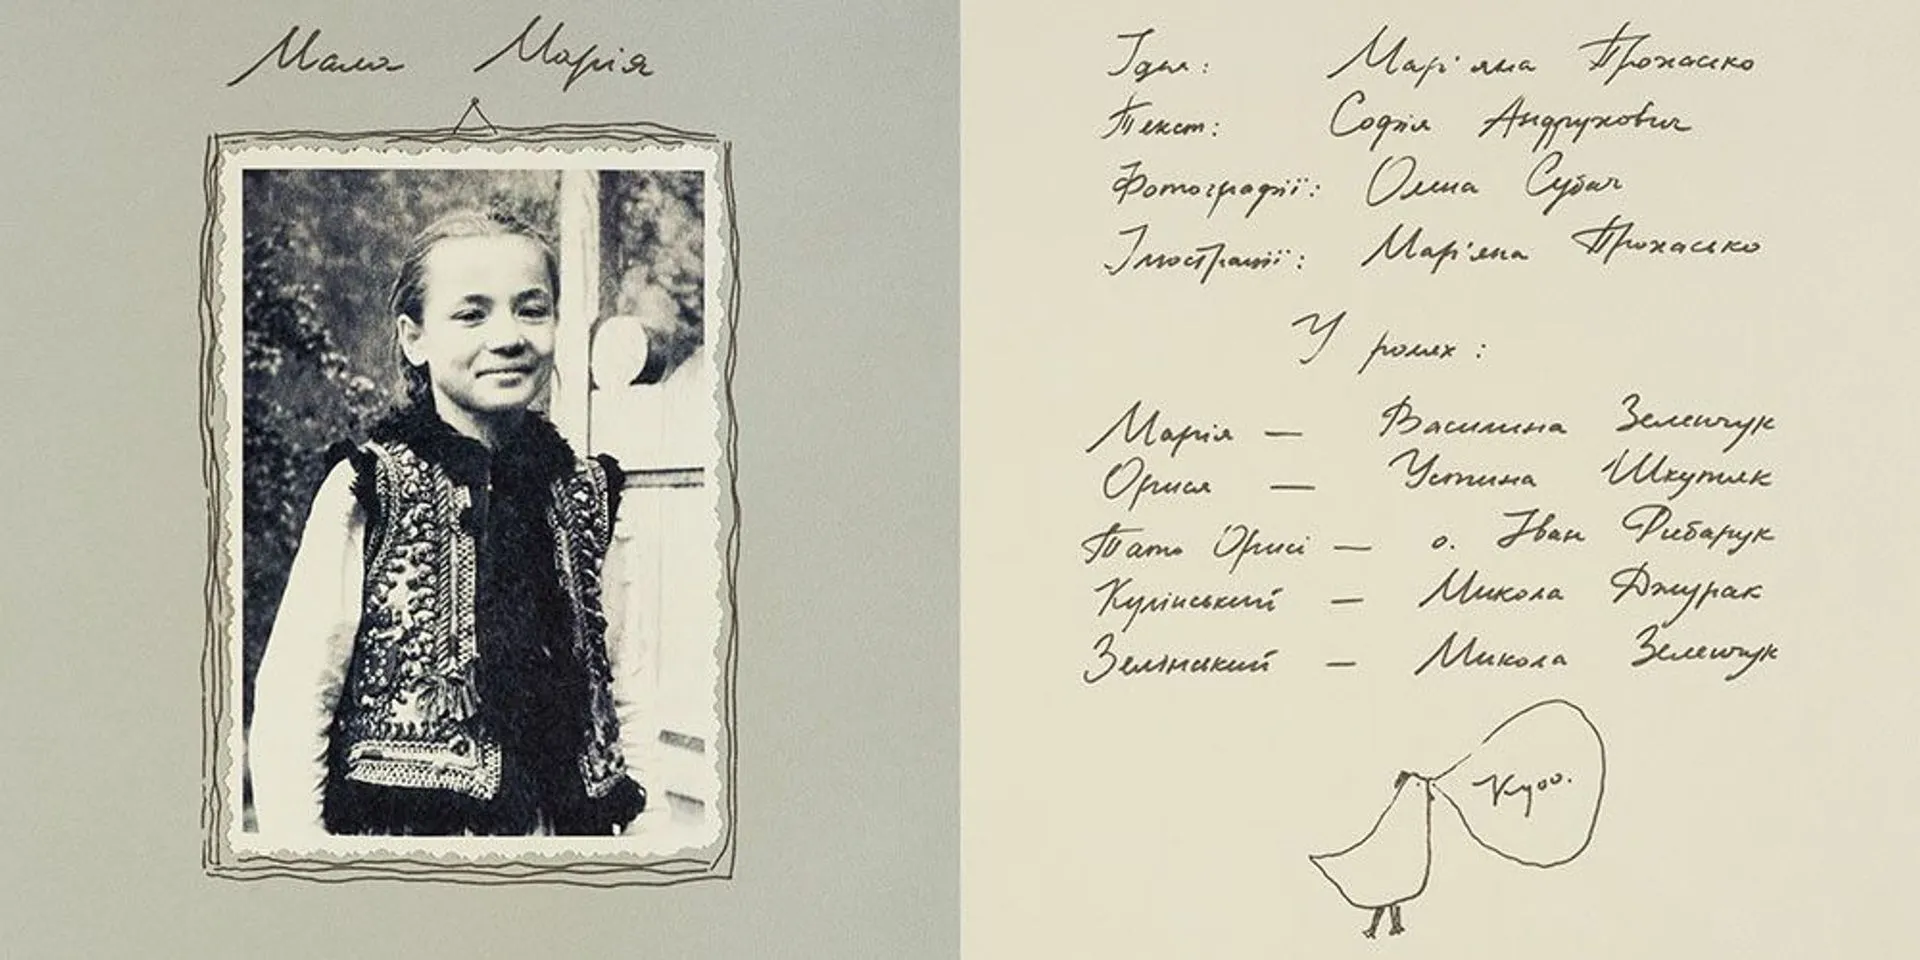 Мала Марія
Ідея: Мар'яна Прохасько
Текст: Софія Андрухович
Фотографії: Олена Субач
Ілюстрації: Мар'яна Прохасько
У ролях:
Марія — Василина Зеленчук
Орися — Устина Шкутяк
Тато Орисі — о. Іван Рибарук
Кулінський — Микола Джурак
Зелінський — Микола Зеленчук
Кудо.